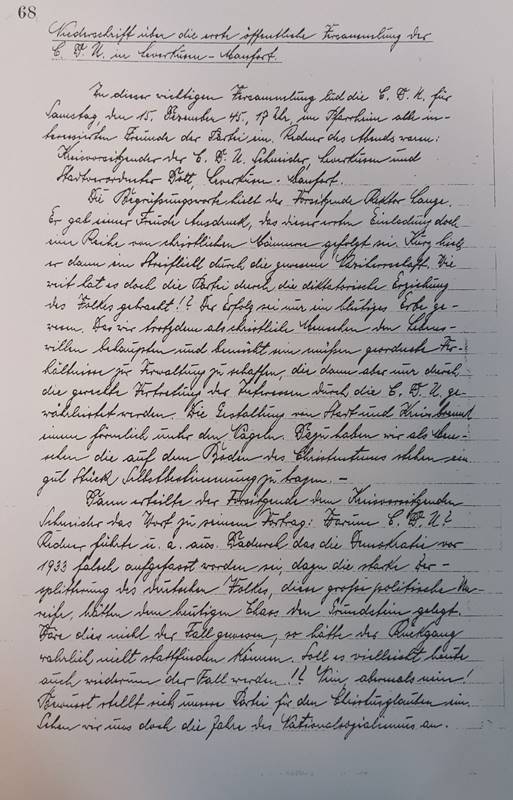 68
Niederschrift über die erste öffentliche Versammlung der
C. D. U. in Leverkusen - Manfort.
Zu dieser wichtigen Versammlung lud die C. D. U. für
Samstag, den 15. Dezember 45, 17 Uhr, im Pfarrheim alle in-
teressierten Freunde der Partei ein. Redner des Abends waren:
Kreisvorsitzender der C. D. U. Schneider, Leverkusen und
Stadtverordneter Dott, Leverkusen - Manfort.
Die Begrüssungsworte hielt der Vorsitzende Rektor Lange.
Er gab seiner Freude Ausdruck, das dieser ersten Einladung doch
eine Reihe von christlichen Männern gefolgt sei. Kurz hielt
er dann im Streiflicht durch die gewesene Naziherrschaft. Wie
weit hat es doch die Partei durch die diktatorische Erziehung
des Volkes gebracht!? Der Erfolg sei nur ein blutiges Erbe ge-
wesen. Das wir trotzdem als christliche Menschen den Lebens-
willen behaupten und bemüht sein müßen, geordnete Ver-
hältnisse zur Verwaltung zu schaffen, die dann aber nur durch
die gerechte Vertretung der Interessen durch die C. D. U. ge-
währleistet werden. Die Gestaltung von Stadt und Kreis brennt
einem förmlich unter den Nägeln. Dazu haben wir als Men-
schen die auf dem Boden des Christentums stehen ein
gut Stück Selbstbestimmung zu tragen. -
Dann erteilte der Vorsitzende dem Kreisvorsitzenden
Schneider das Wort zu seinem Vortrag: Warum C. D. U.?
Redner führte u. a. aus. Dadurch das die Demokratie vor
1933 falsch aufgefasst worden sei, dazu die starke Zer-
splitterung des deutschen Volkes, diese große politische Un-
reife, hätten dem heutigen Chaos den Grundstein gelegt.
Wäre dies nicht der Fall gewesen, so hätte der Rückgang
wahrlich nicht stattfinden können. Soll es vielleicht heute
auch wiederum der Fall werden!? Nein, abermals nein!
Bewusst stellt sich unsere Partei für den Christusglauben ein.
Sehen wir uns doch die Jahre des Nationalsozialismus an.